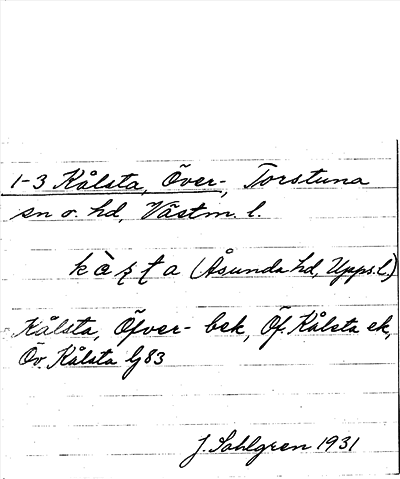 1-3 Kålsta, Över-, Torstuna
sn o. hd, Västm. l.
(Åsunda hd, Upps.l.)
Kålsta, Öfver- bek, Öf. Kålsta ek,
Öv. Kålsta lj 83
J. Sahlgren 1931